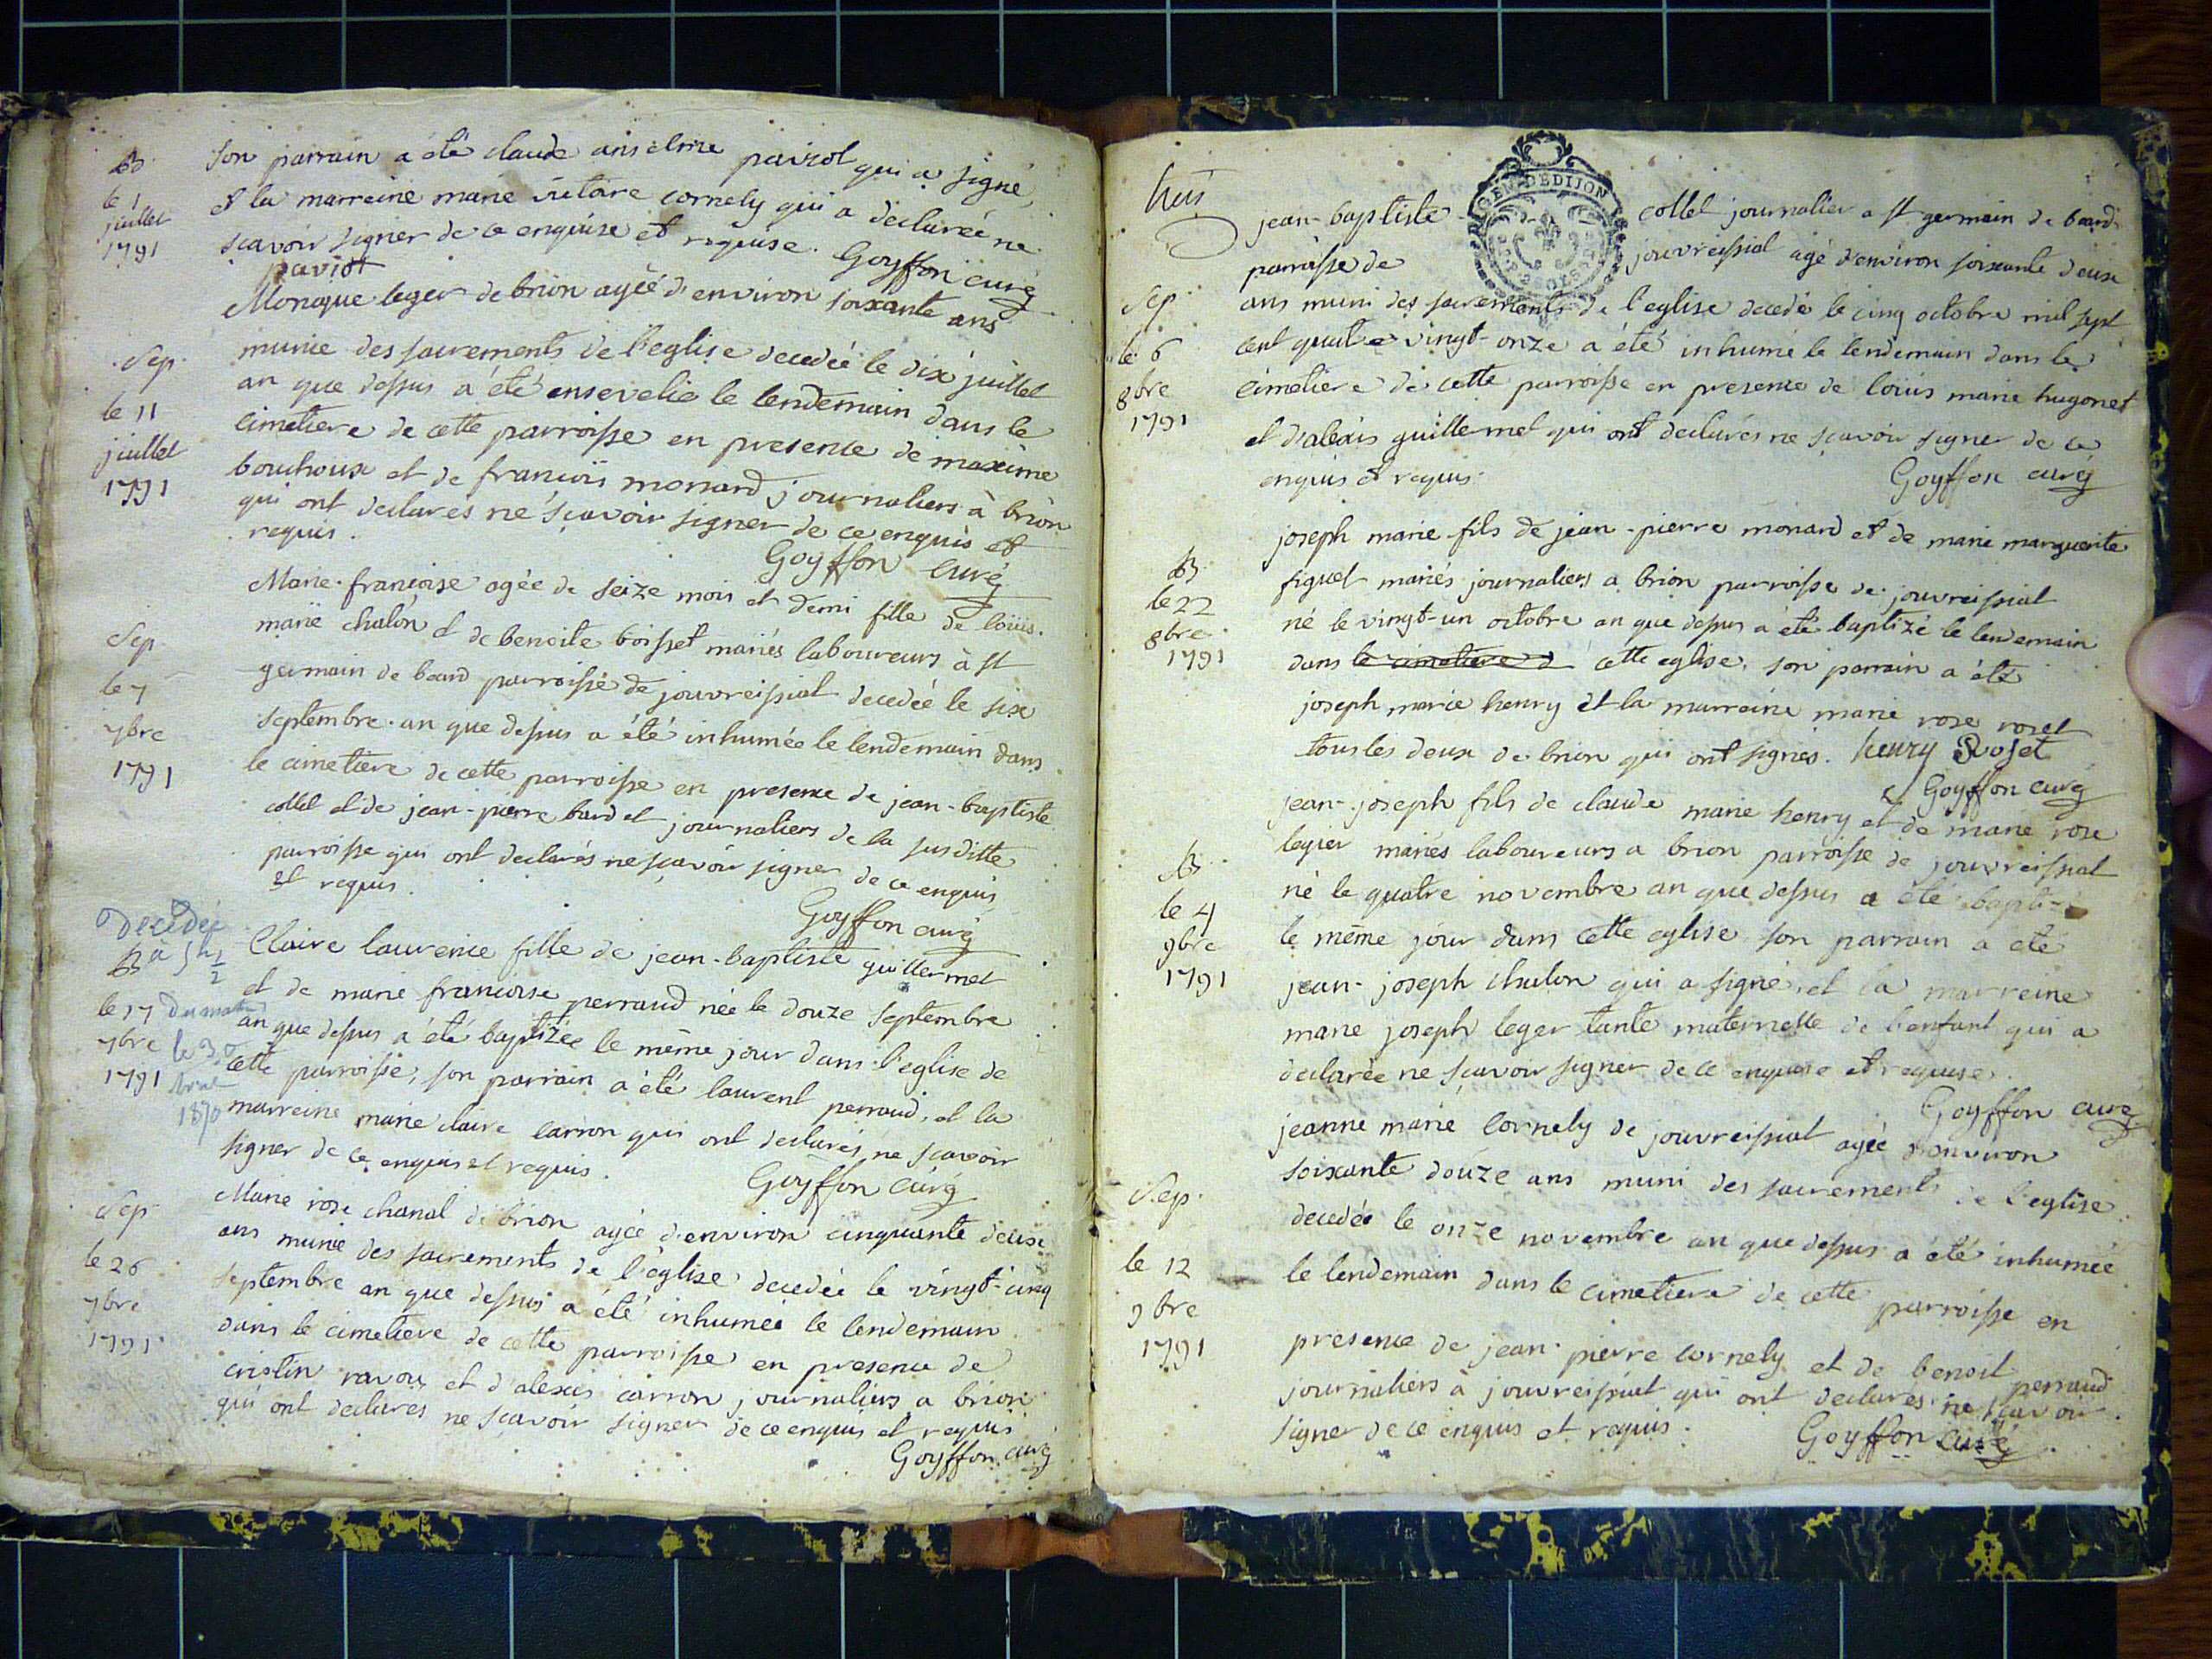 B
le 1
juillet
1791
son parrain a été claude anselme paviot qui a signé,
et la marreine marie victoire cornely qui a declarée ne
sçavoir signer de ce enquise et requise. Goyffon curé
paviot
Sep
le 11
juillet
1791
Monique leger de brion agée d'environ soixante ans
munie des sacrements de l'eglise decedée le dix juillet
an que dessus a été ensevelie le lendemain dans le
cimetiere de cette parroisse en presence de maxime
bouchoux et de francois monard journaliers à brion
qui ont declarés ne sçavoir signer de ce enquis et
requis.
Goyffon curé
Sep
le 7
7bre
1791
Marie-françoise agée de seize mois et demi fille de loüis
marie chalon et de benoite boisset mariés laboureurs à st
germain de beard parroisse de jouvreissiat decedée le six
septembre an que dessus a été inhumée le lendemain dans
le cimetiere de cette parroisse en presence de jean-baptiste
collet et de jean-pierre bardet journaliers de la susditte
parroisse qui ont declarés ne sçavoir signer de ce enquis
et requis.
Goyffon curé
Decedée
B à 5h 1/2
le 17 du matin
7bre le 30
1791
1870
Claire laurence fille de jean-baptiste guillermet
et de marie francoise perraud née le douze septembre
an que dessus a été baptizée le même jour dans l'eglise de
cette parroisse, son parrain a été laurent perraud, et la
marreine marie claire carron qui ont declarés ne sçavoir
signer de ce enquis et requis.
Goyffon curé
Sep
le 26
7bre
1791
Marie rose chanal de brion agée d'environ cinquante deux
ans munie des sacrements de l'eglise decedée le vingt-cinq
septembre an que dessus a été inhumée le lendemain
dans le cimetiere de cette parroisse en presence de
cristin ravou et d'alexis carron journaliers a brion
qui ont declarés ne sçavoir signer de ce enquis et requis
Goyffon curé
huis
GEN. DE DIJON
Sep
le 6
8bre
1791
jean-baptiste collet journalier a st germain de beard
parroisse de jouvreissiat agé d'environ soixante deux
ans muni des sacrements de l'eglise decedé le cinq octobre mil sept
cent quatre vingt-onze a été inhumé le lendemain dans le
cimetiere de cette parroisse en presence de loüis marie hugonet
et d'alexis guillermet qui ont declarés ne sçavoir signer de ce
enquis et requis.
Goyffon curé
B
le 22
8bre
1791
joseph marie fils de jean-pierre monard et de marie marguerite
figuet mariés journaliers a brion parroisse de jouvreissiat
né le vingt-un octobre an que dessus a été baptizé le lendemain
dans le cimetiere d cette eglise, son parrain a été
joseph marie henry et la marreine marie rose roset
tous les deux de brion qui ont signés. henry Roset
Goyffon curé
B
le 4
9bre
1791
jean-joseph fils de claude marie henry et de marie rose
legier mariés laboureurs a brion parroisse de jouvreissiat
né le quatre novembre an que dessus a été bapti-
le même jour dans cette eglise son parrain a été
jean-joseph chalon qui a signé, et la marreine
marie joseph leger tante maternelle de l'enfant qui a
declarée ne sçavoir signer de ce enquise et requise.
Goyffon curé
Sep
le 12
9bre
1791
jeanne marie cornely de jouvreissiat agée d'environ
soixante douze ans muni des sacrements de l'eglise
decedée le onze novembre an que dessus a été inhumée
le lendemain dans le cimetiere de cette parroisse en
presence de jean-pierre cornely et de benoit perraud
journaliers à jouvreissiat qui ont declarés ne sçavoir
signer de ce enquis et requis.
Goyffon curé